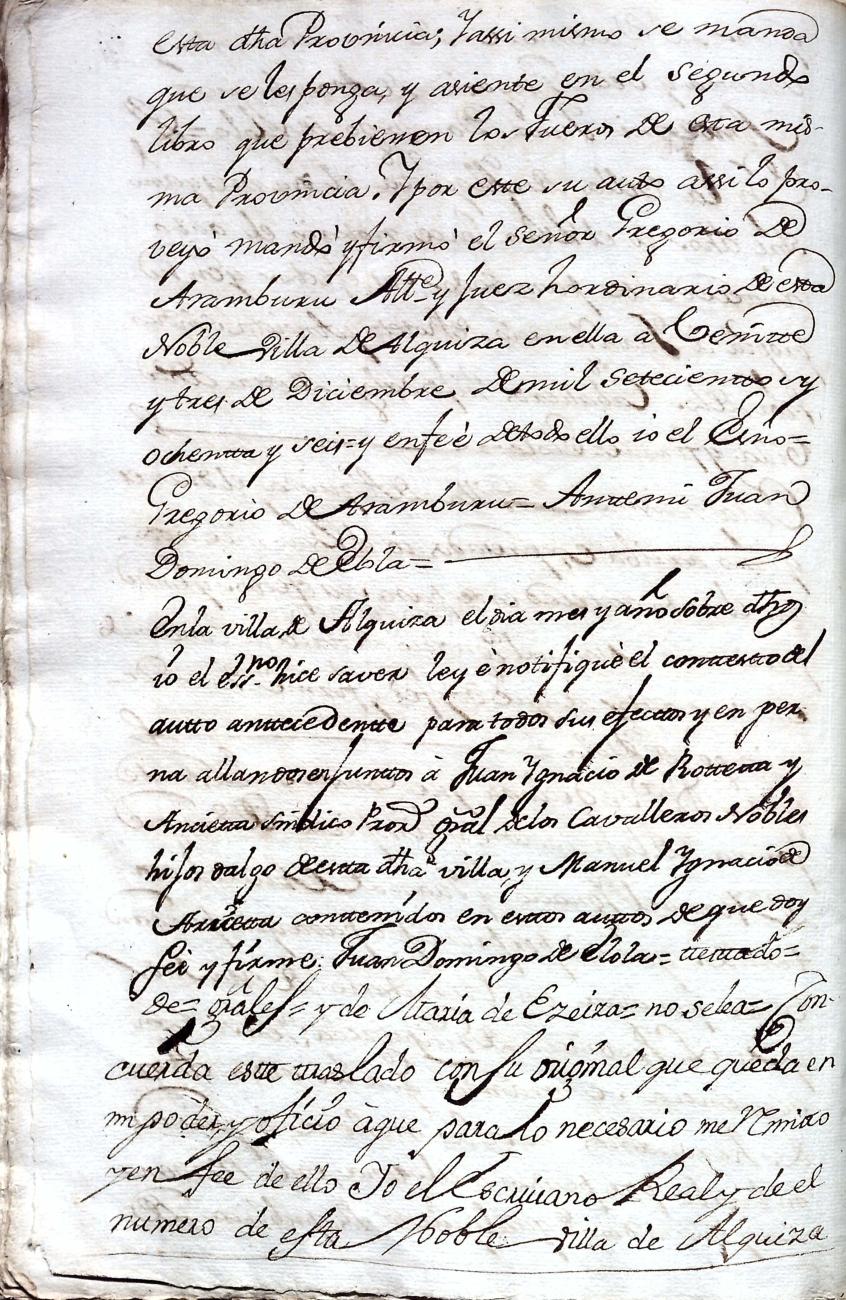 esta dha Provincia; Yassi mismo se manda
que se les ponga, y asiente en el segundo
libro que prebienen los Fueros de esta mis-
ma Provincia. Y por este su auto assi lo pro-
veyó mandó y firmó el señor Gregorio de
Aramburu Alte y Juez hordinario de esta
Noble Villa de Alquiza en ella a Veintte
y tres de Diciembre de mil settecienttos y
ochentta y seis = y enfeé detodo ello io el Esno =
Gregorio de Aramburu = Anttemi Juan
Domingo de Elola =
Enla villa de Alquiza el dia mes y año sobre dhos
io el essno hice saver ley è notifiquè el conttestto del
autto anttecedentte para todos sus efecttos y en per
na allandose juntos à Juan Ygnacio de Rottetta y
Ancietta Sindico Pror gral delos Cavalleros Nobles
hijos dalgo de estta dha villa, y Manuel Ygnacio de
Arricetta conttenidos en esttos auttos de que doy
feè y firme: Juan Domingo de Elola = ttesttado =
de = grales = y de Maria de Ezeiza = no selea = Con-
cuerda estte traslado con su original que queda en
mi poder, y oficio à que para lo necesario me Rmito
yen fee de ello Yo el Escrivano Real y de el
numero de esta Noble villa de Alquiza